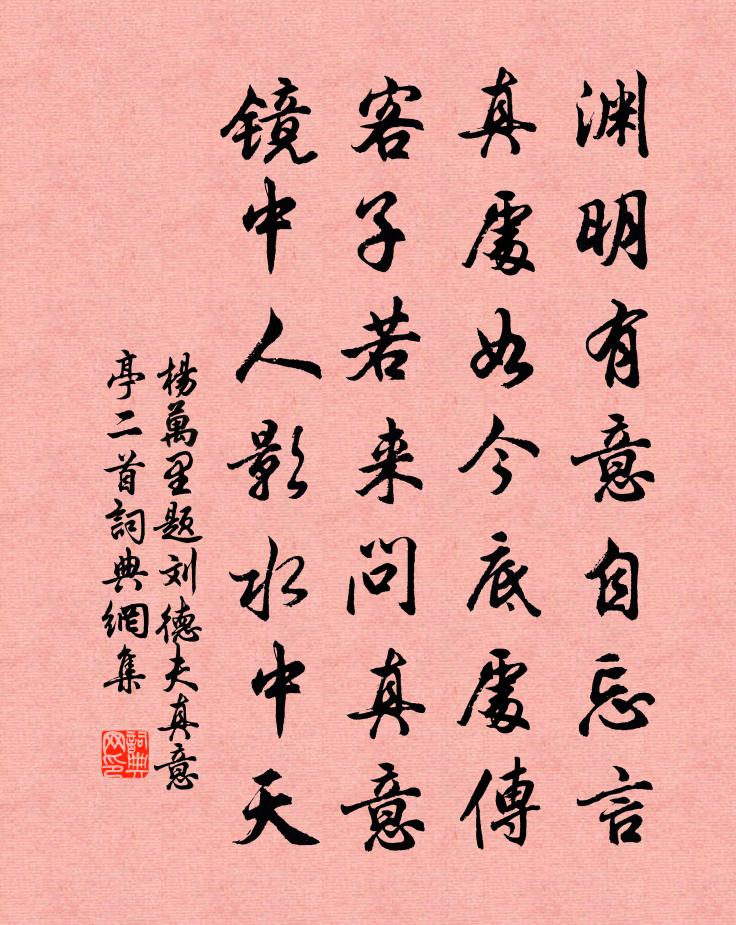 渊明有意自忘言
真處如今底處傳
客子若来问真意
镜中人影水中天
楊萬里题刘德夫真意
亭二首詞典網集
詞典
网印